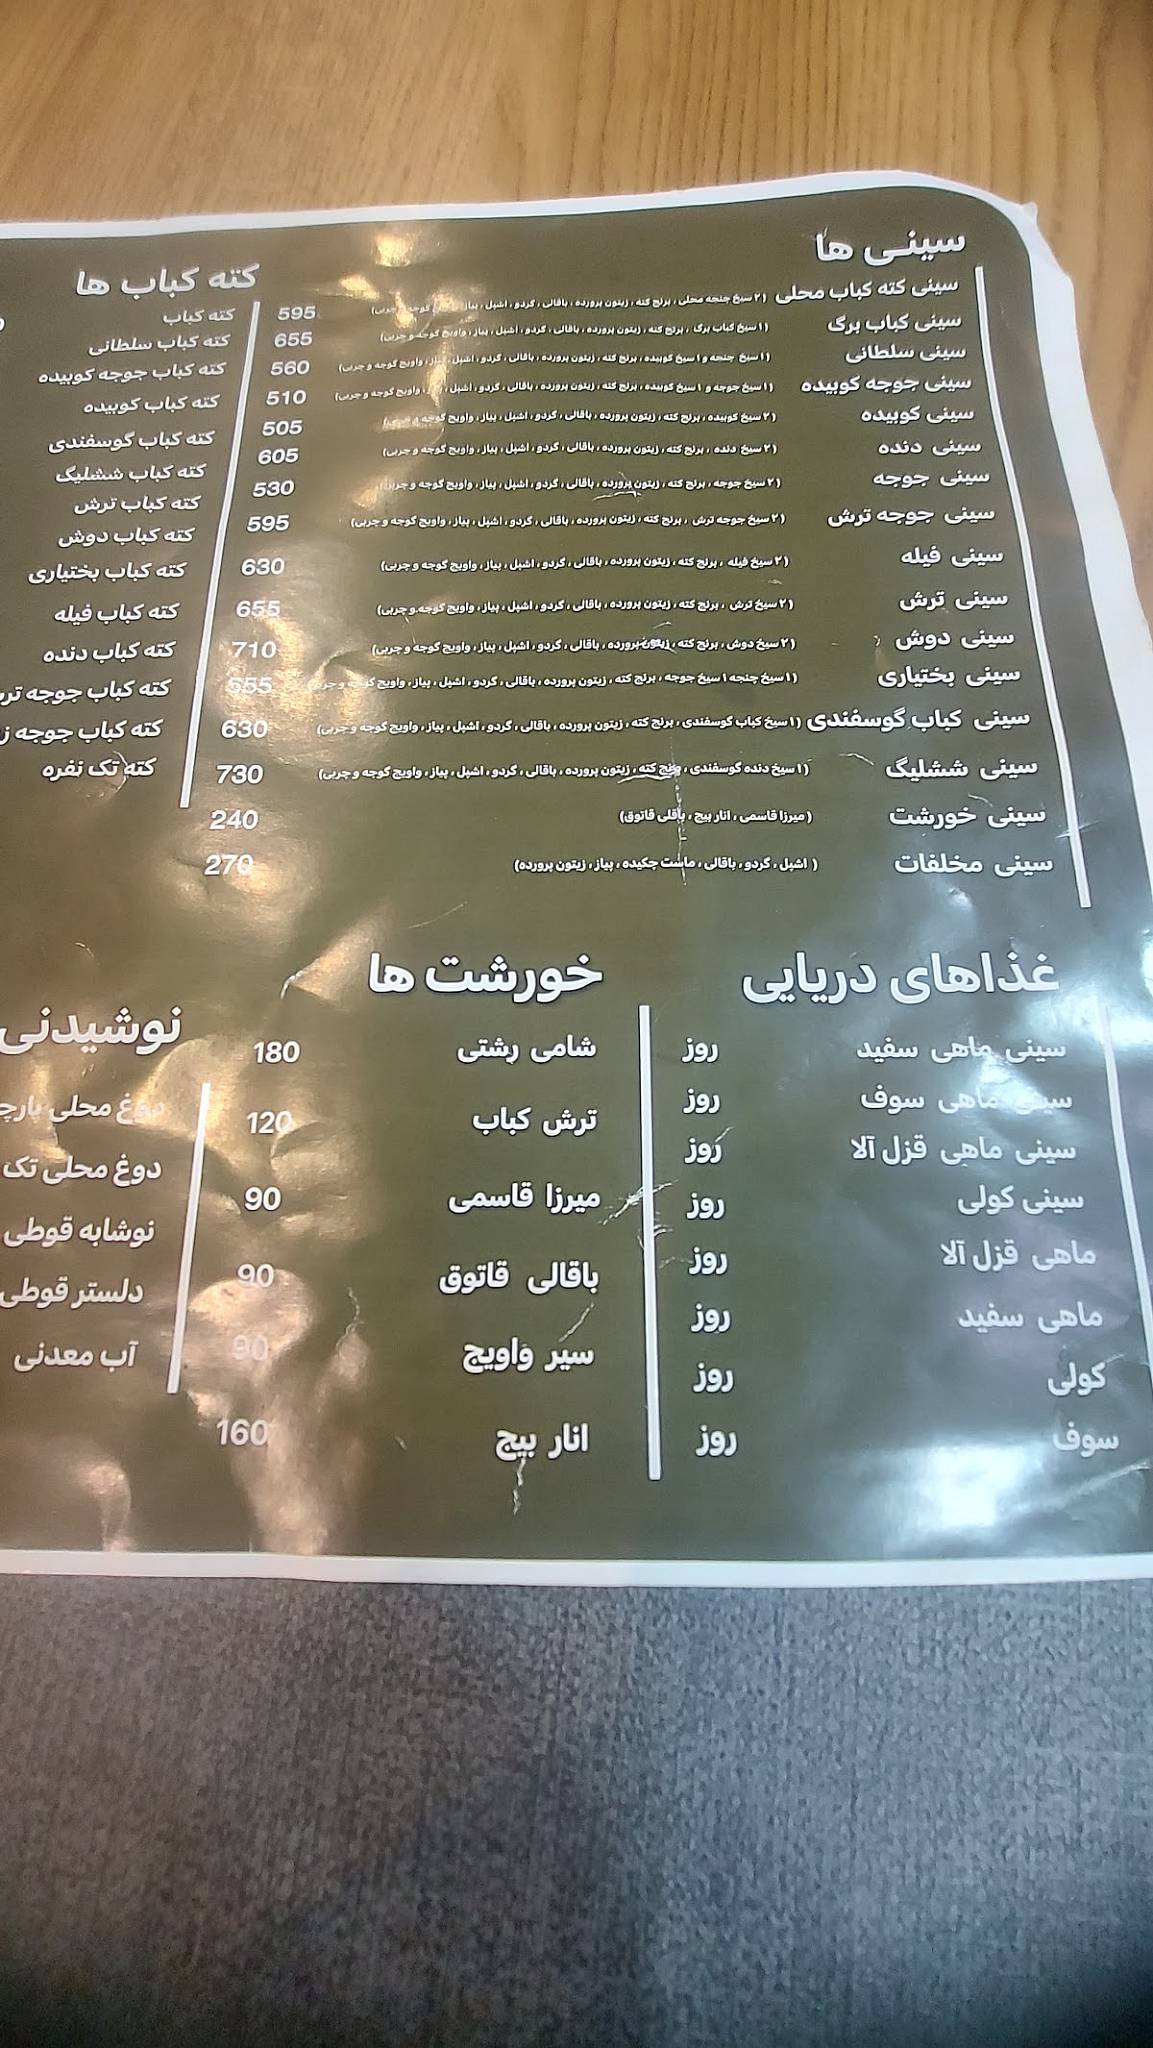 سینی ها
سینی کته کباب محلی (۲ سیخ چنجه محلی ، برنج کته ، زیتون پرورده ، باقالی ، گردو ، اشپل ، پیاز ، گوجه و چربی) 595
سینی کباب برگ (۱ سیخ کباب برگ ، برنج کته ، زیتون پرورده ، باقالی ، گردو ، اشپل ، پیاز ، واویج گوجه و چربی) 655
سینی سلطانی (۱ سیخ چنجه و ۱ سیخ کوبیده ، برنج کته ، زیتون پرورده ، باقالی ، گردو ، اشپل ، پیاز ، واویج گوجه و چربی) 560
سینی جوجه کوبیده (۱ سیخ جوجه و ۱ سیخ کوبیده ، برنج کته ، زیتون پرورده ، باقالی ، گردو ، اشپل ، پیاز ، واویج گوجه و چربی) 510
سینی کوبیده (۲ سیخ کوبیده ، برنج کته ، زیتون پرورده ، باقالی ، گردو ، اشپل ، پیاز ، واویج گوجه و چربی) 505
سینی دنده (۲ سیخ دنده ، برنج کته ، زیتون پرورده ، باقالی ، گردو ، اشپل ، پیاز ، واویج گوجه و چربی) 605
سینی جوجه (۲ سیخ جوجه ، برنج کته ، زیتون پرورده ، باقالی ، گردو ، اشپل ، پیاز ، واویج گوجه و چربی) 530
سینی جوجه ترش (۲ سیخ جوجه ترش ، برنج کته ، زیتون پرورده ، باقالی ، گردو ، اشپل ، پیاز ، واویج گوجه و چربی) 595
سینی فیله (۲ سیخ فیله ، برنج کته ، زیتون پرورده ، باقالی ، گردو ، اشپل ، پیاز ، واویج گوجه و چربی) 630
سینی ترش (۲ سیخ ترش ، برنج کته ، زیتون پرورده ، باقالی ، گردو ، اشپل ، پیاز ، واویج گوجه و چربی) 655
سینی دوش (۲ سیخ دوش ، برنج کته ، زیتون پرورده ، باقالی ، گردو ، اشپل ، پیاز ، واویج گوجه و چربی) 710
سینی بختیاری (۱ سیخ چنجه ۱ سیخ جوجه ، برنج کته ، زیتون پرورده ، باقالی ، گردو ، اشپل ، پیاز ، واویج گوجه و چربی) 555
سینی کباب گوسفندی (۱ سیخ کباب گوسفندی ، برنج کته ، زیتون پرورده ، باقالی ، گردو ، اشپل ، پیاز ، واویج گوجه و چربی) 630
سینی ششلیگ (۱ سیخ دنده گوسفندی ، برنج کته ، زیتون پرورده ، باقالی ، گردو ، اشپل ، پیاز ، واویج گوجه و چربی) 730
سینی خورشت (میرزا قاسمی ، انار بیج ، باقلی قاتوق) 240
سینی مخلفات (اشپل ، گردو ، باقالی ، ماست چکیده ، پیاز ، زیتون پرورده) 270
کته کباب ها
کته کباب
کته کباب سلطانی
کته کباب جوجه کوبیده
کته کباب کوبیده
کته کباب گوسفندی
کته کباب ششلیگ
کته کباب ترش
کته کباب دوش
کته کباب بختیاری
کته کباب فیله
کته کباب دنده
کته کباب جوجه
کته کباب جوجه
کته تک نفره
غذاهای دریایی
سینی ماهی سفید روز
سینی ماهی سوف روز
سینی ماهی قزل آلا روز
سینی کولی روز
ماهی قزل آلا روز
ماهی سفید روز
کولی روز
سوف روز
خورشت ها
شامی رشتی 180
ترش کباب 120
میرزا قاسمی 90
باقالی قاتوق 90
سیر واویج 90
انار بیج 160
نوشیدنی
دوغ محلی
دوغ محلی تک
نوشابه قوطی
دلستر قوطی
آب معدنی